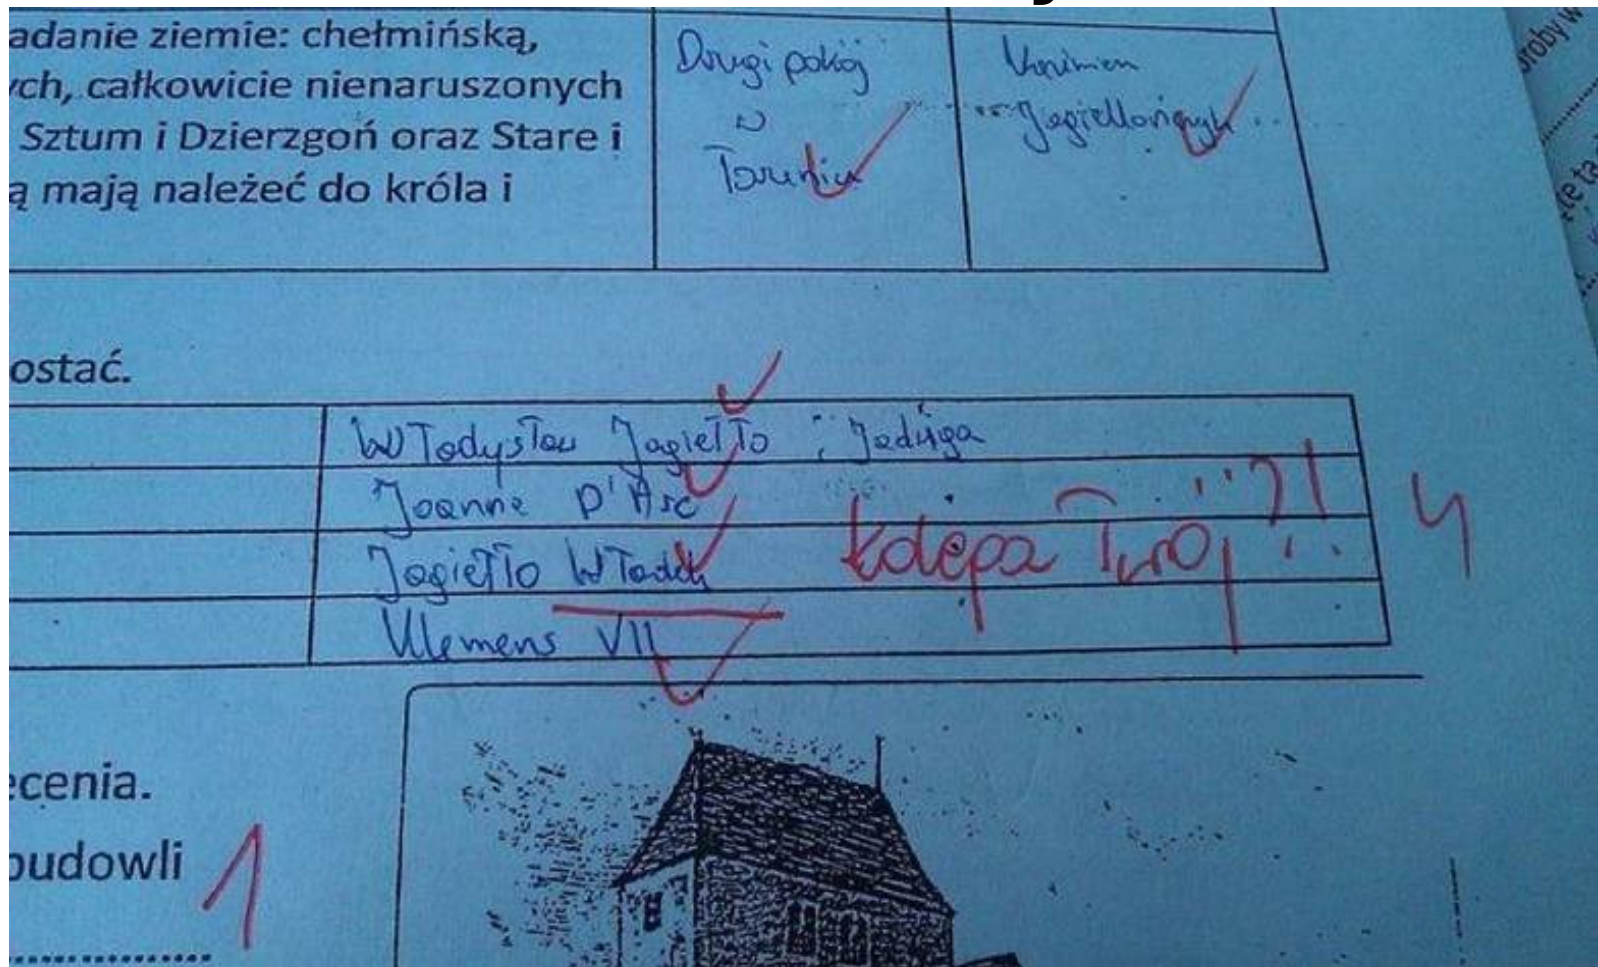 adanie ziemie: chełmińską,
ych, całkowicie nienaruszonych
Sztum i Dzierzgoń oraz Stare i
ą mają należeć do króla i
Drugi pokój
w
Toruniu
Kazimierz
Jagiellończyk
ostać.
Władysław Jagiełło i Jadwiga
Joanne D'Arc
Jagiełło Władek
kolega Twój?!
4
Klemens VII
ecenia.
budowli
1